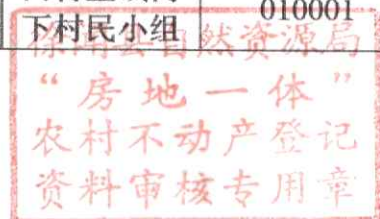 下村民小组 010001
徐闻县自然资源局
“房地一体”
农村不动产登记
资料审核专用章